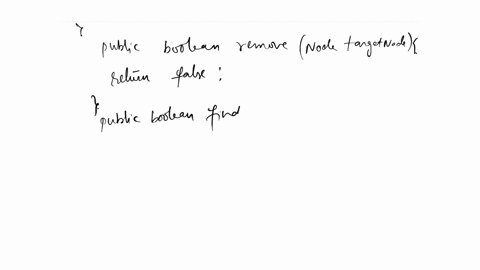 }
public boolean remove (Node targetNode){
return false ;
}
public boolean find